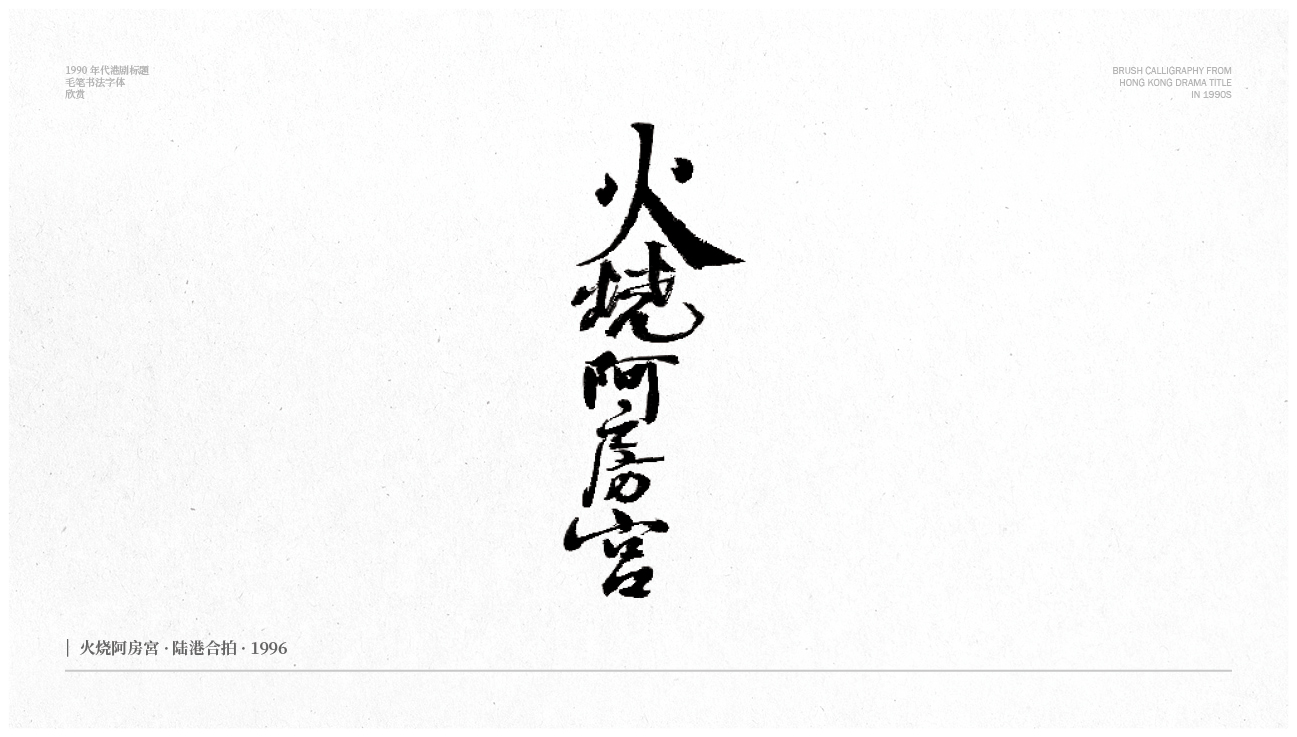 1990 年代港剧标题
毛笔书法字体
欣赏
BRUSH CALLIGRAPHY FROM
HONG KONG DRAMA TITLE
IN 1990S
火
燒
阿
房
宮
火烧阿房宫 · 陆港合拍 · 1996